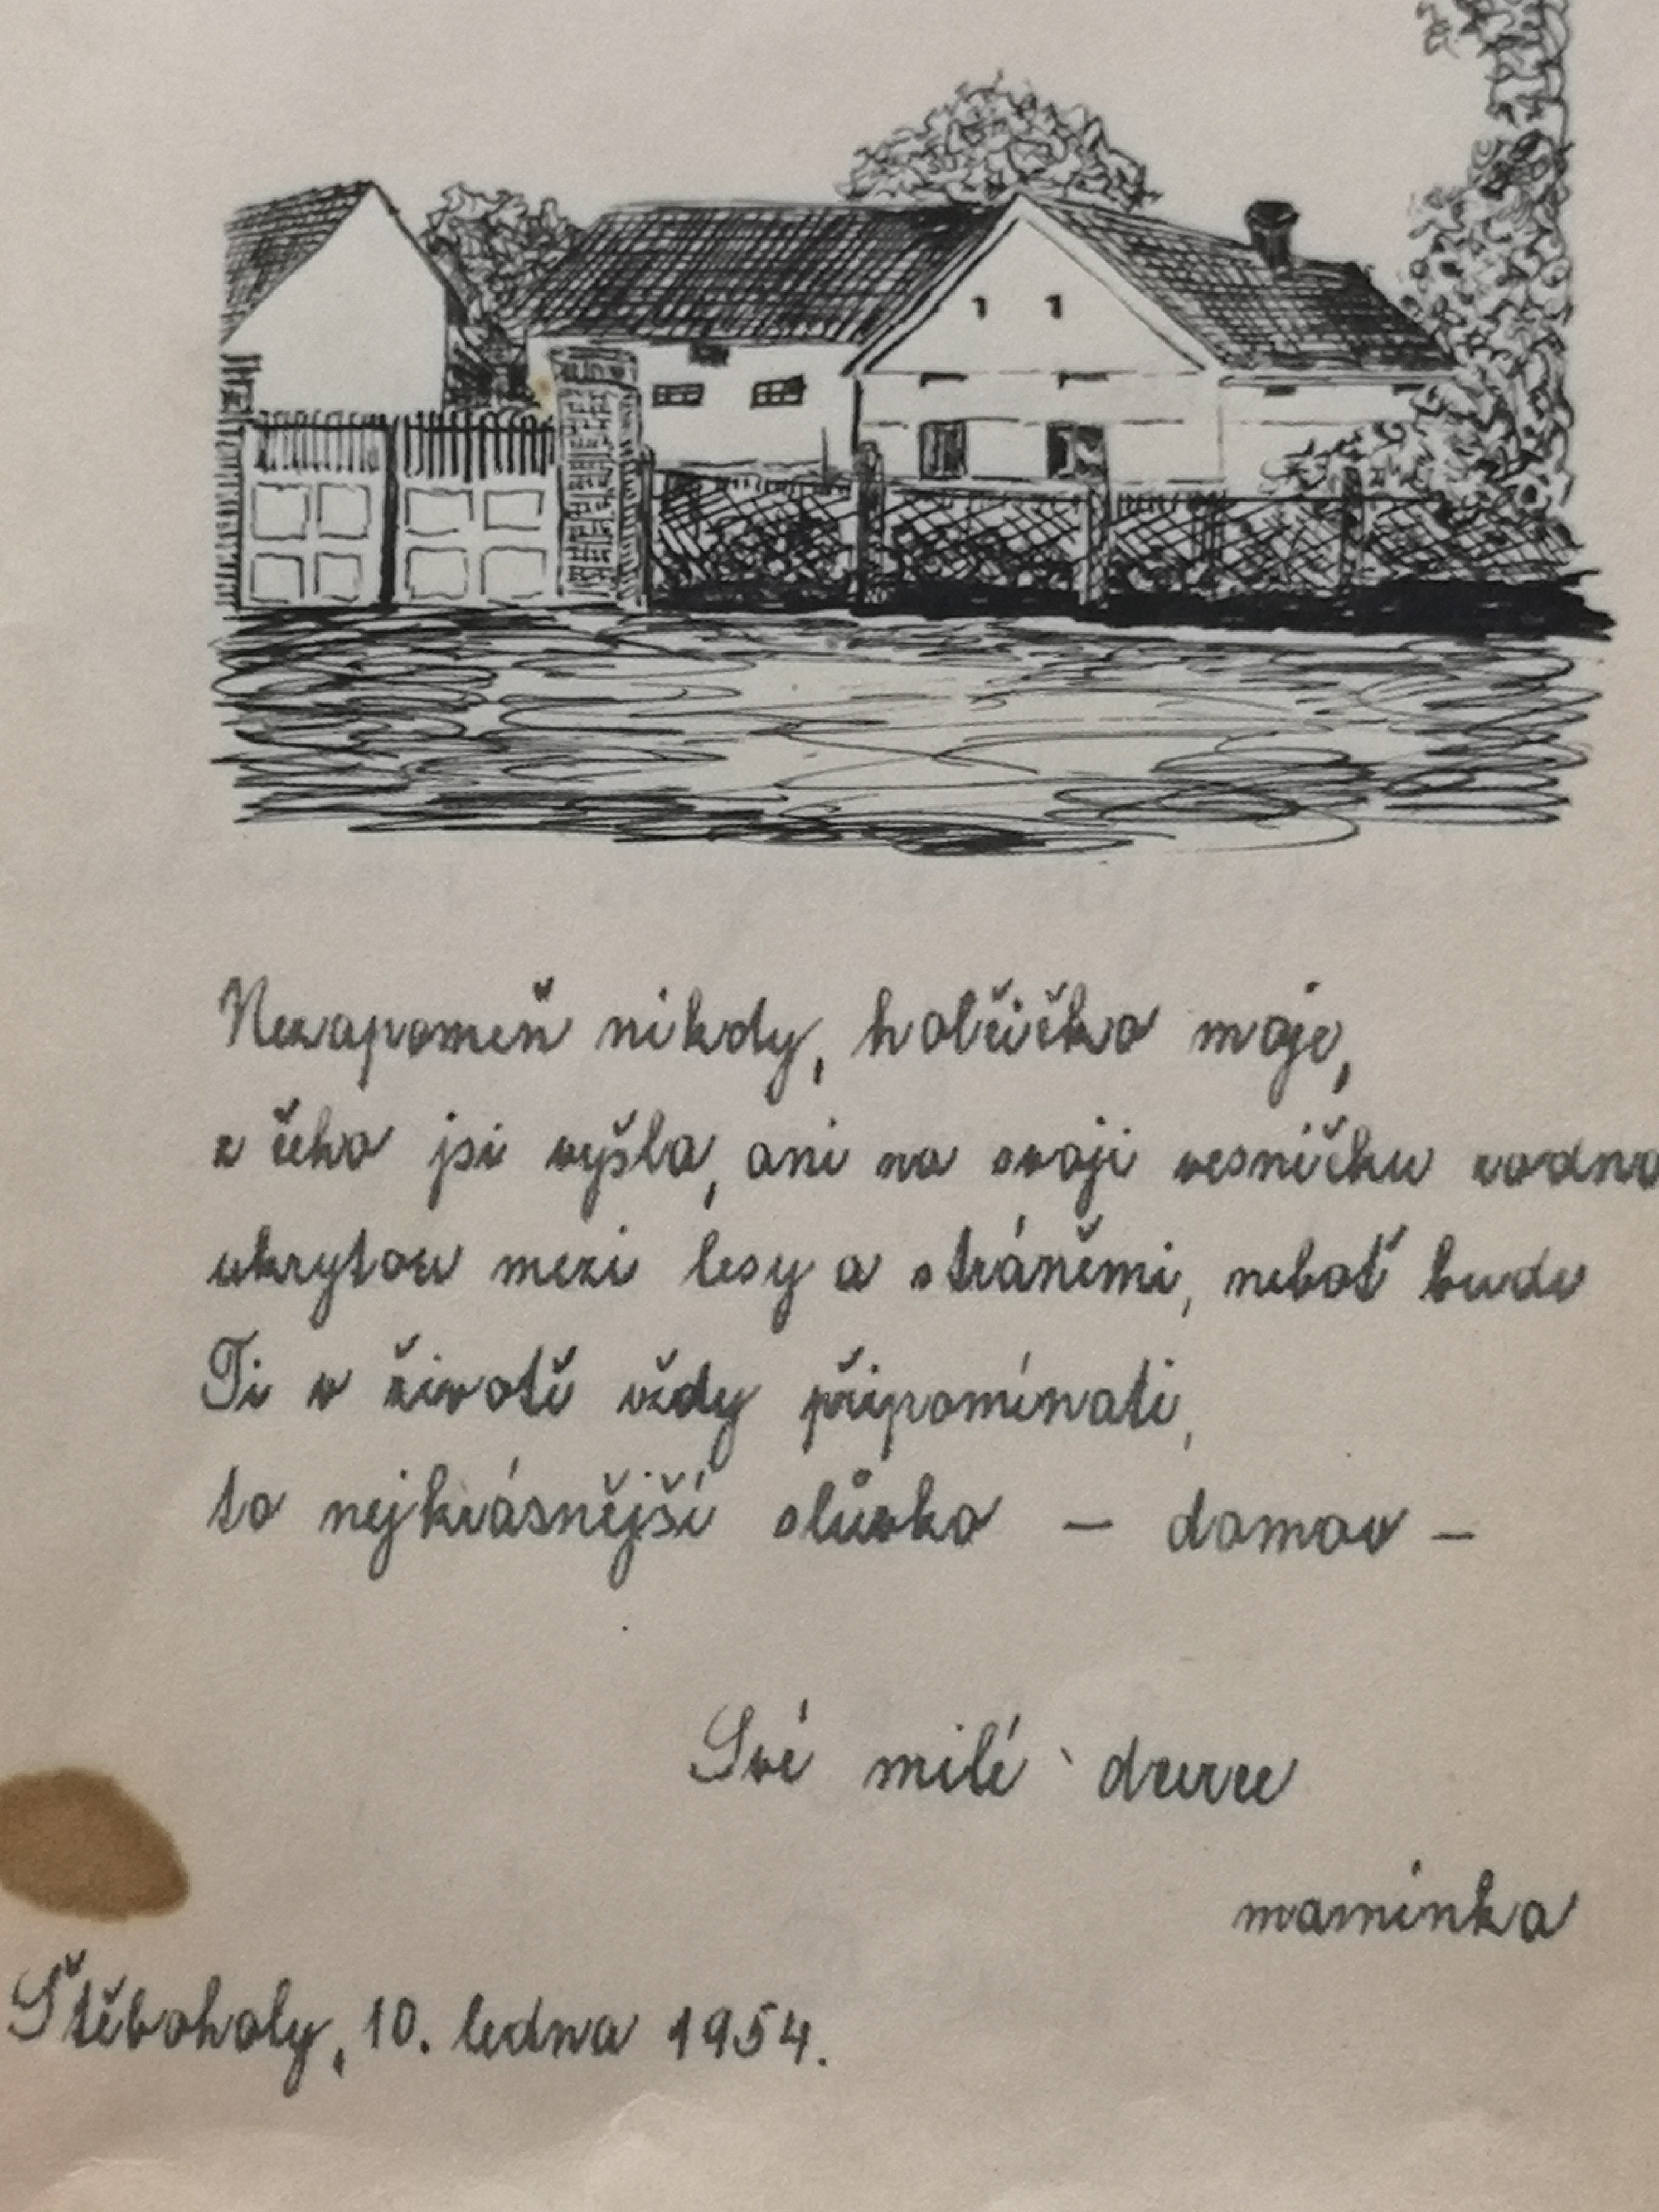 Nezapomeň nikdy, holčičko moje,
z čeho jsi vyšla, ani na svoji vesničku rodno
ukrytou mezi lesy a stráněmi, neboť bude
Ti v životě vždy připomínati,
to nejkrásnější slůvko – domov –
Své milé dceru
maminka
Štěboholy, 10. ledna 1954.